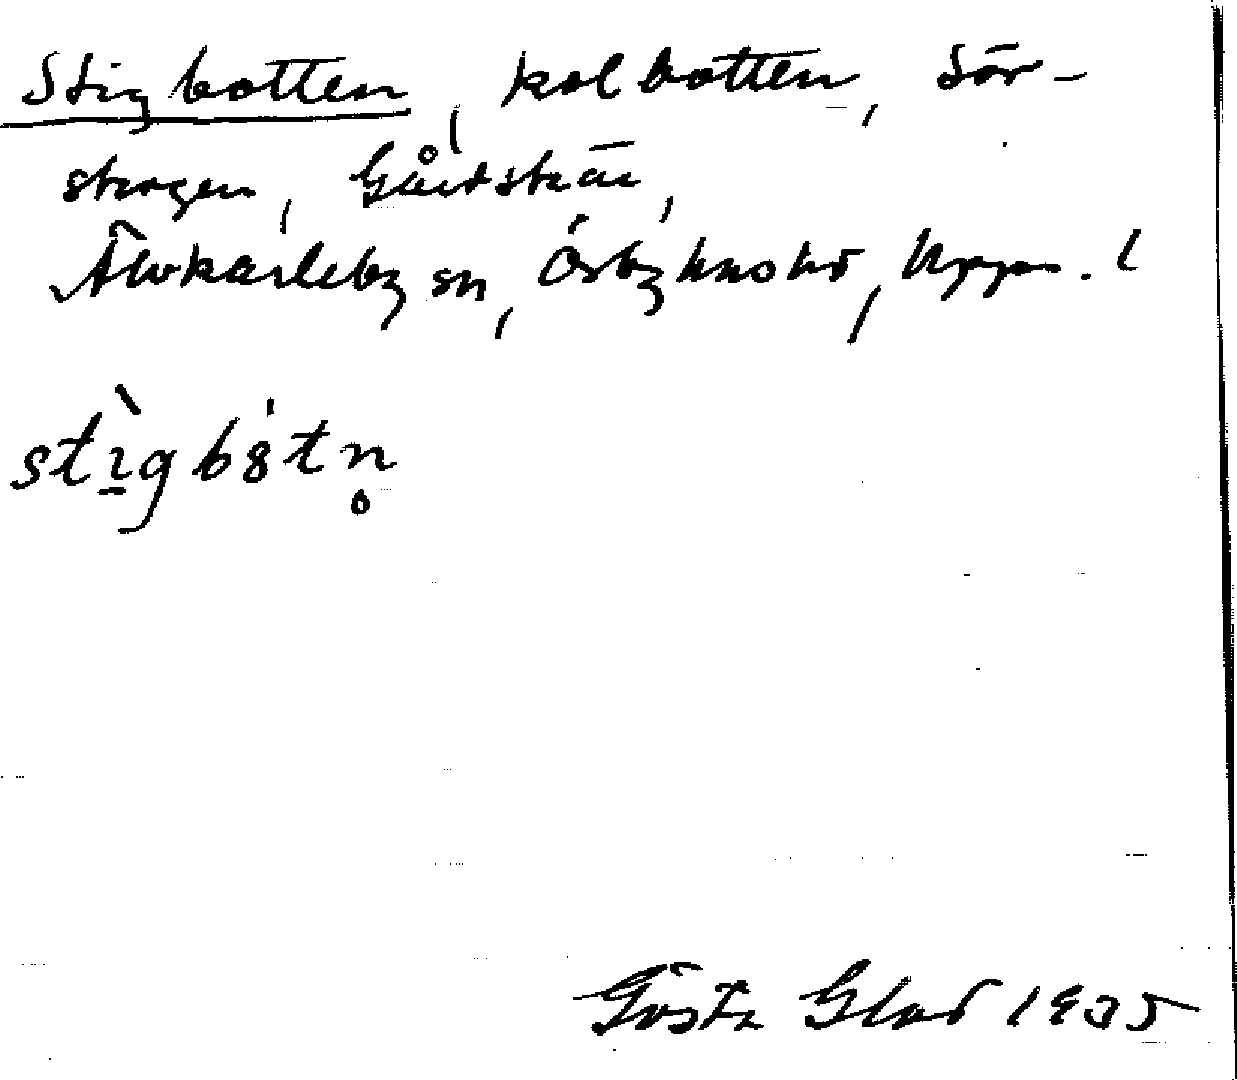 Stigbotten, kolbotten, Sör-
skogen, Gårdskär,
Älvkarleby sn, Örbyhus hd, Upps. l
stìgbȣtn̥
Gösta Glad 1935